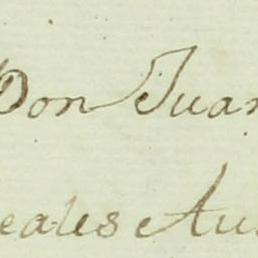 Don Juan
eales Au